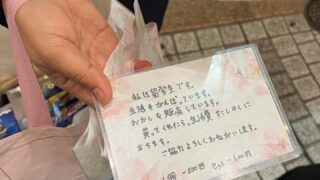 私は留学生です。
生活をがんばっています。
おかしを販売しています。
買ってくれたら、生活費をたしかに
立ちます。
ご協力よろしくおねがいします。
1個 -500円 セット-100円